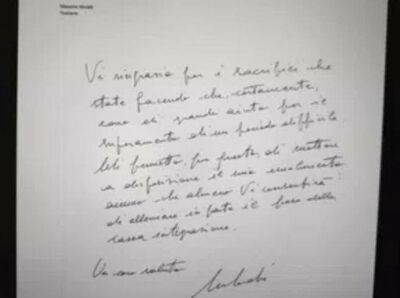 Vi ringrazio per i sacrifici che
state facendo che, certamente,
sono di grande aiuto per il
superamento di un periodo difficile.
Mi permetto, per questo, di mettere
a disposizione il mio emolumento
annuo che almeno Vi consentirà
di alleviare in parte il peso della
cassa integrazione.
Un caro saluto